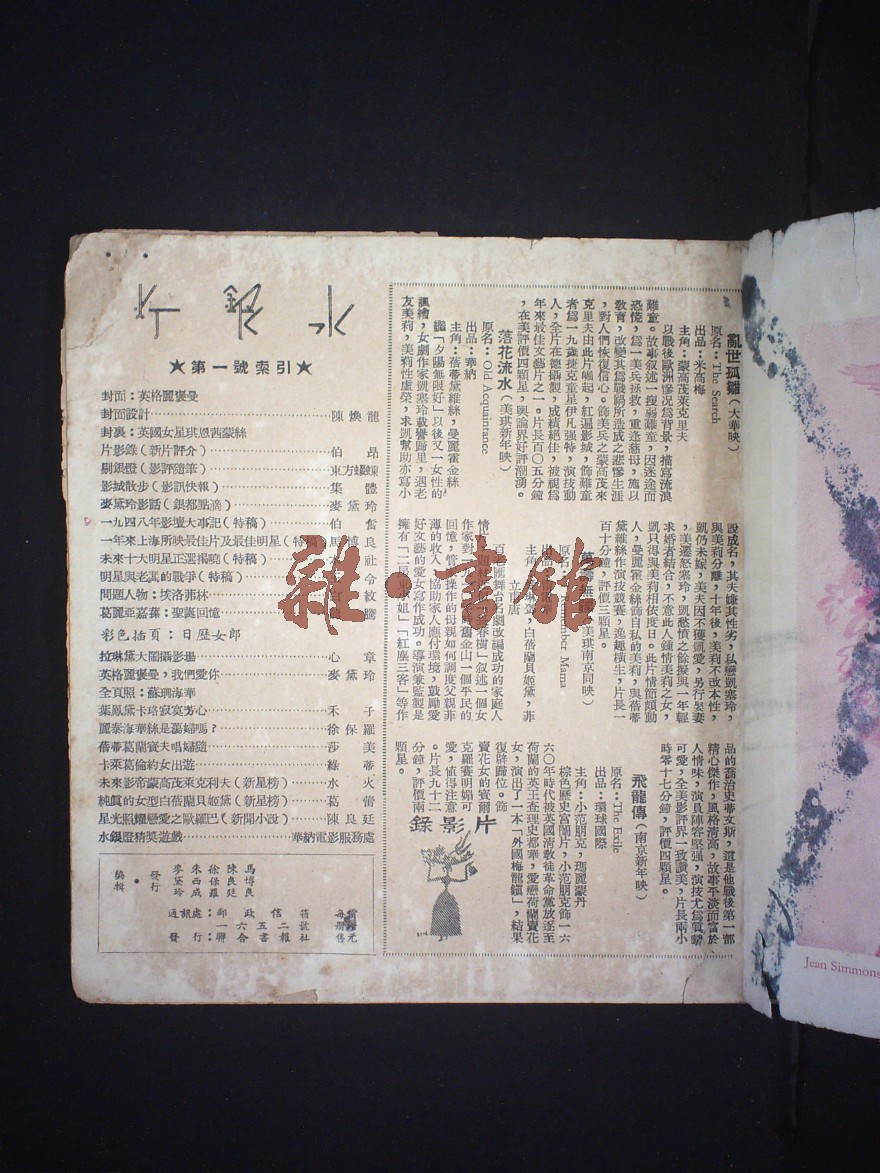 ★第一號索引★
封面：英格麗褒曼
封面設計 陳煥龍
封裏：英國女星琪恩茜蒙絲
片影錄（新片評介） 伯昂
剔銀燈（影評隨筆） 東方
影城散步（影訊快報） 集體
麥黛玲影話（銀都點滴） 麥黛玲
一九四八年影壇大事記（特稿） 伯奮
一年來上海所映最佳片及最佳明星（特稿） 馬博良
未來十大明星正選揭曉（特稿） 社
明星與老闆的戰爭（特稿） 令
問題人物：埃洛弗林 紋
葛麗亞嘉蓀：聖誕回憶 騰
彩色插頁：日歷女郎
拉琳黛大鬧攝影場 心章
英格麗褒曼，我們愛你 麥黛玲
全頁照：蘇珊海華
葉鳳黛卡珞寂寞芳心 禾子
麗泰海華絲是蕩婦嗎？ 徐保羅
蓓蒂葛蘭寶夫唱婦隨 莎美
卡萊葛倫約女出遊 綠蒂
未來影帝蒙高茂萊克利夫（新星榜） 水火
純眞的女型白蓓蘭貝姬黛（新星榜） 葛蕾
星光照耀戀愛之歐羅巴（新聞小說） 陳良廷
水銀燈猜獎遊戲 華納電影服務處
編輯・發行
馬博良
陳良廷
徐保羅
朱西成
麥黛玲
通訊處：郵政信箱
一六五二號
發行：聯合書報社
每册售 元
片影錄
亂世孤雛（大華映）
原名：The Search
出品：米高梅
主角：蒙高茂萊克里夫
以戰後歐洲慘況爲背景，描寫流浪
難童。故事叙述一瘦弱難童，因迷途而
恐慌，爲一美兵拯救，重逢慈母，施以
敎育，改變其爲戰禍所造成之悲慘生涯
，對人們恢復信心。飾美兵之蒙高茂來
克里夫由此片崛起，紅遍影城，飾難童
者爲一九歲捷克童星伊凡强特，演技動
人，全片在德攝製，成績絕佳，被視爲
年來最佳文藝片之一。片長百〇五分鐘
，在美評價四顆星，輿論界好評潮湧。
落花流水（美琪新年映）
原名：Old Acquaintance
出品：華納
主角：蓓蒂黛維絲，曼麗霍金絲
繼「夕陽無限好」以後又一女性的
諷繪，女劇作家凱塞玲載譽歸里，遇老
友美莉，美莉性虛榮，求凱幫助亦寫小
說成名，其夫嫌其性劣，私戀凱塞玲，
與美莉分離，十年後，美莉不改本性，
凱仍未嫁，美夫因不獲凱愛，另行娶妻
，美遷怒塞玲，凱愁憤之餘擬與一年輕
求婚者結合，不意此人鍾情美莉之女，
凱只得與美莉相依度日。此片情節頗動
人，曼麗霍金絲飾自私的美莉，與蓓蒂
黛維絲作演技競賽，逸趣橫生，片長一
百十分鐘，評價三顆星。
（美琪南京同映）
白蓓蘭貝姬黛，菲
百老匯舞台名劇改編成功的家庭人
叙述一個女
作家對 舊金山一個平民的
回憶，管理操作的母親如何調度父親菲
薄的收入，協助家人應付環境，鼓勵愛
好文藝的愛女寫作成功。導演兼監製是
擁有「 東小姐」「紅塵三客」等作
品的喬治史蒂文斯，這是他戰後第一部
精心傑作，風格清高，故事平淡而富於
人情味，演員陣容堅强，演技尤爲眞摯
可愛，全美影評界一致讚美，片長兩小
時零十七分鐘，評價四顆星。
飛龍傳（南京新年映）
原名：The Exile
出品：環球國際
主角：小范朋克，瑪麗蒙丹
棕色歷史宮闈片，小范朋克飾一六
六〇年時代被英國清敎徒革命黨放逐至
荷蘭的英王查理史都華，愛戀荷蘭賣花
女，演出了一本「外國梅龍鎭」，結果
復辟歸位。飾
賣花女的寶爾
克羅賽明媚可
愛，値得注意
。片長九十二
分鐘，評價兩
顆星。
雜・書館
Jean Simmons